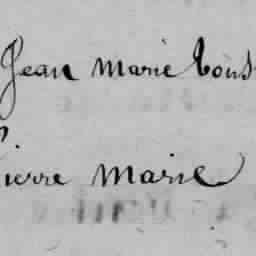 Jean Marie Tous
Pierre Marie